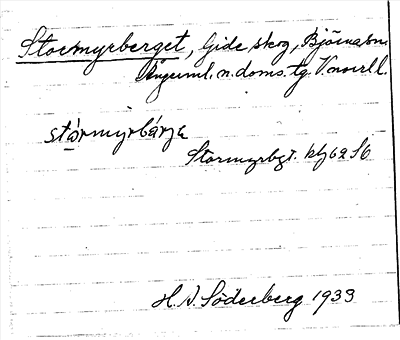 Stormyrberget, Gide skog, Björna sn.
Ångerml. n. doms. tg. V.norrl l.
stårmyrbárja
Stormyrbgt. kbl 62 S6
H. A. Söderberg 1933